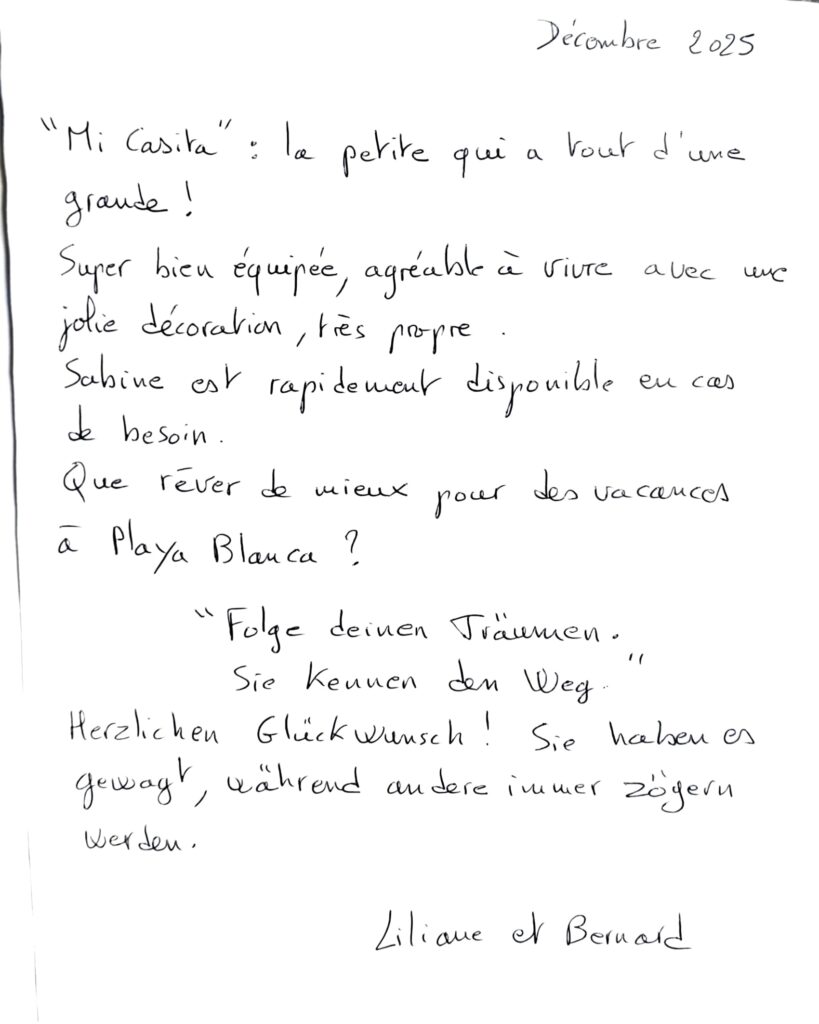 Décembre 2025
"Mi Casita" : la petite qui a tout d'une
grande !
Super bien équipée, agréable à vivre avec une
jolie décoration, très propre.
Sabine est rapidement disponible en cas
de besoin.
Que rêver de mieux pour des vacances
à Playa Blanca ?
"Folge deinen Träumen.
Sie kennen den Weg."
Herzlichen Glückwunsch ! Sie haben es
gewagt, während andere immer zögern
werden.
Liliane et Bernard